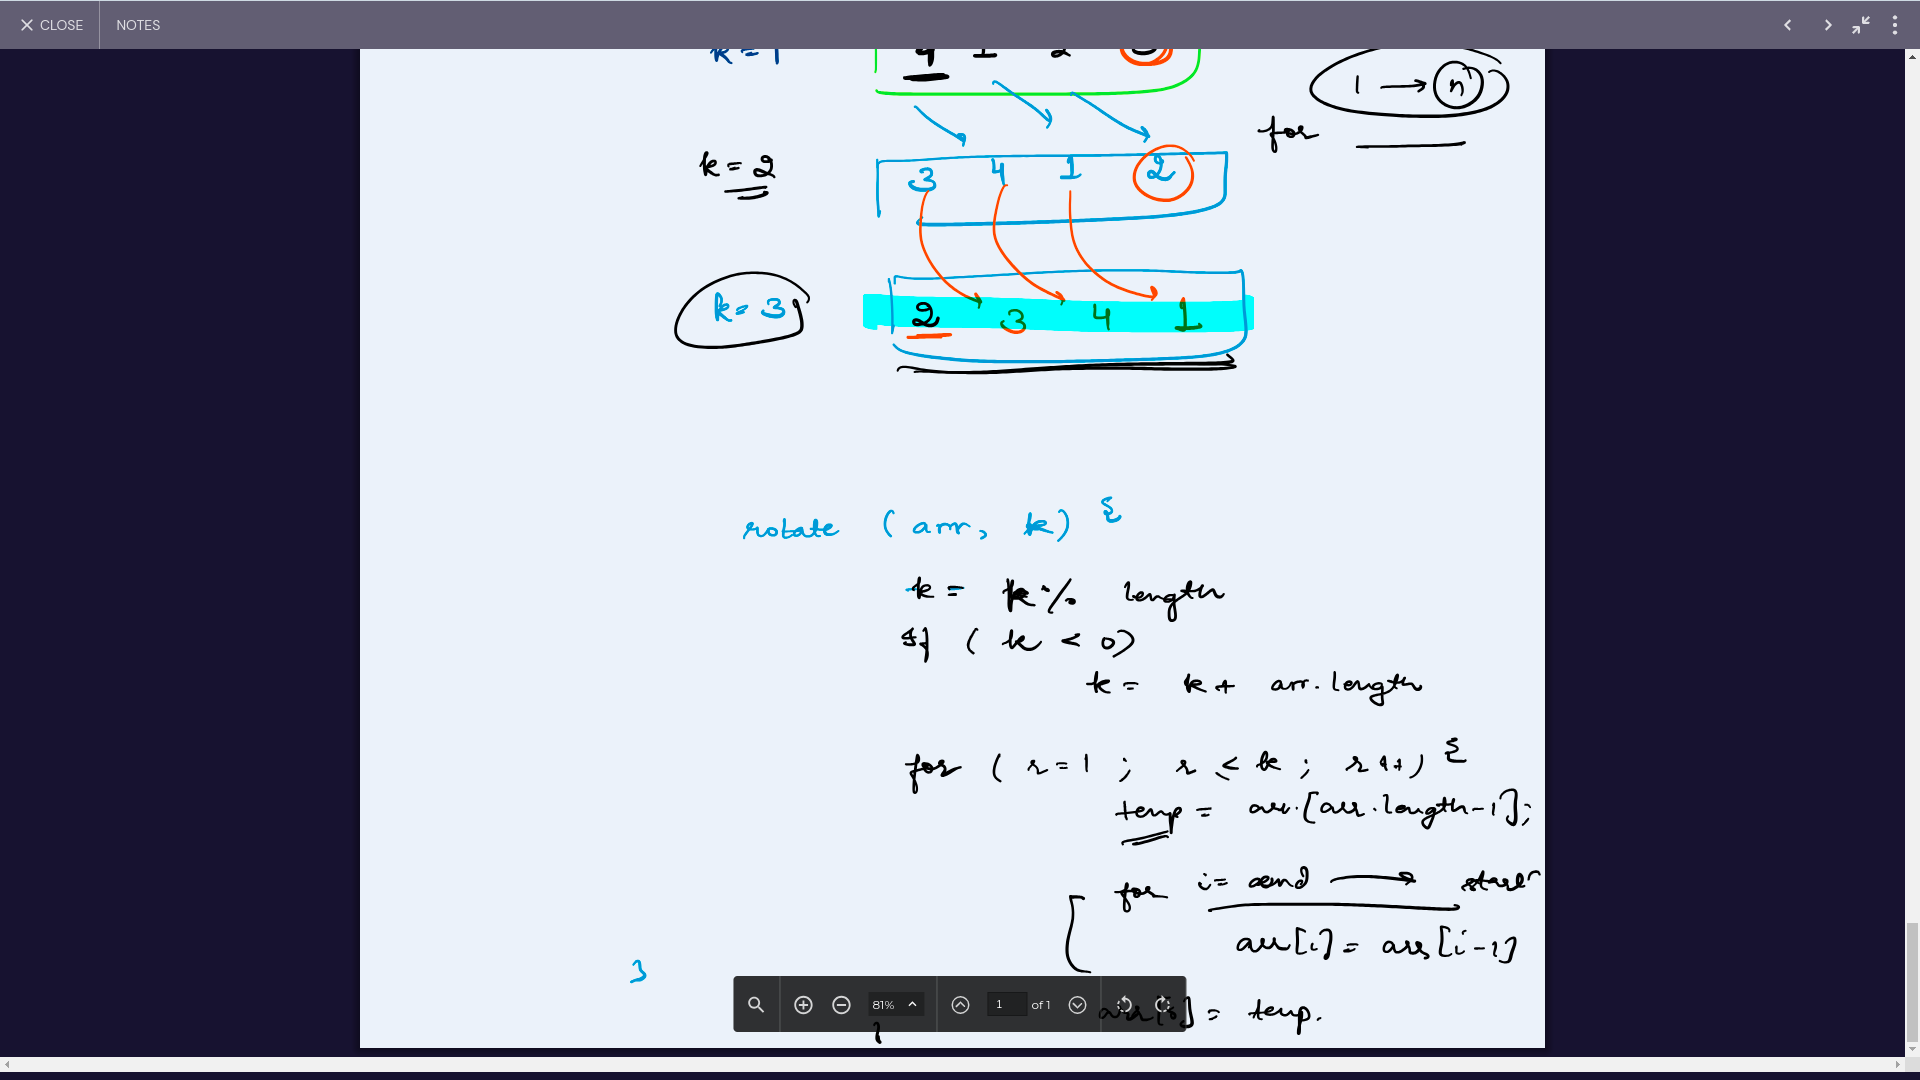 CLOSE NOTES
k = 1 4 1 2
1 → n
for
k = 2 3 4 1 2
k = 3 2 3 4 1
rotate ( arr, k) {
k = k % length
if ( k < 0)
k = k + arr.length
for ( r = 1 ; r ≤ k ; r++) {
temp = arr.[arr.length-1];
for i = end → start
arr[i] = arr[i-1]
}
81% 1 of 1
= temp.